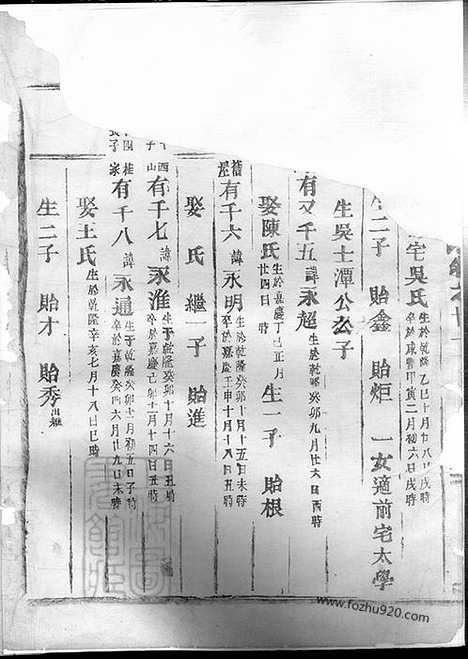 宅吳氏 生於乾隆乙巳十月廿八日戌時 卒於咸豐甲寅二月初六日戌時
生二子 貽鑫 貽炬 一女適前宅太學
生吳士潭公么子
有又千五諱永超 生於乾隆癸卯九月廿六日酉時
娶陳氏 生於嘉慶丁巳正月廿四日 生一子 貽根
有千六諱永明 生於乾隆癸卯十月十五日未時 卒於嘉慶壬申十月十八日丑時
娶 氏 繼一子 貽進
西山 有千七諱永淮 生于乾隆癸卯十月十六日丑時 卒於嘉慶己卯十一月十四日五時
桂家 有千八諱永通 生于乾隆癸卯十一月初五日子時 卒於嘉慶癸酉六月廿九日未時
娶王氏 生於乾隆辛亥七月十八日巳時
生二子 貽才 貽秀 出繼
www.fozhu920.com